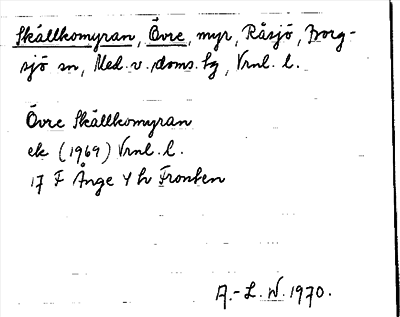 Skällkomyran, Övre, myr, Råsjö, Borg-
sjö sn, Med. v. doms. hg, Vrnl. l.
Övre Skällkomyran
ek (1969) Vrnl. l.
17 F Ånge 4 h Fronten
A.-L. W. 1970.